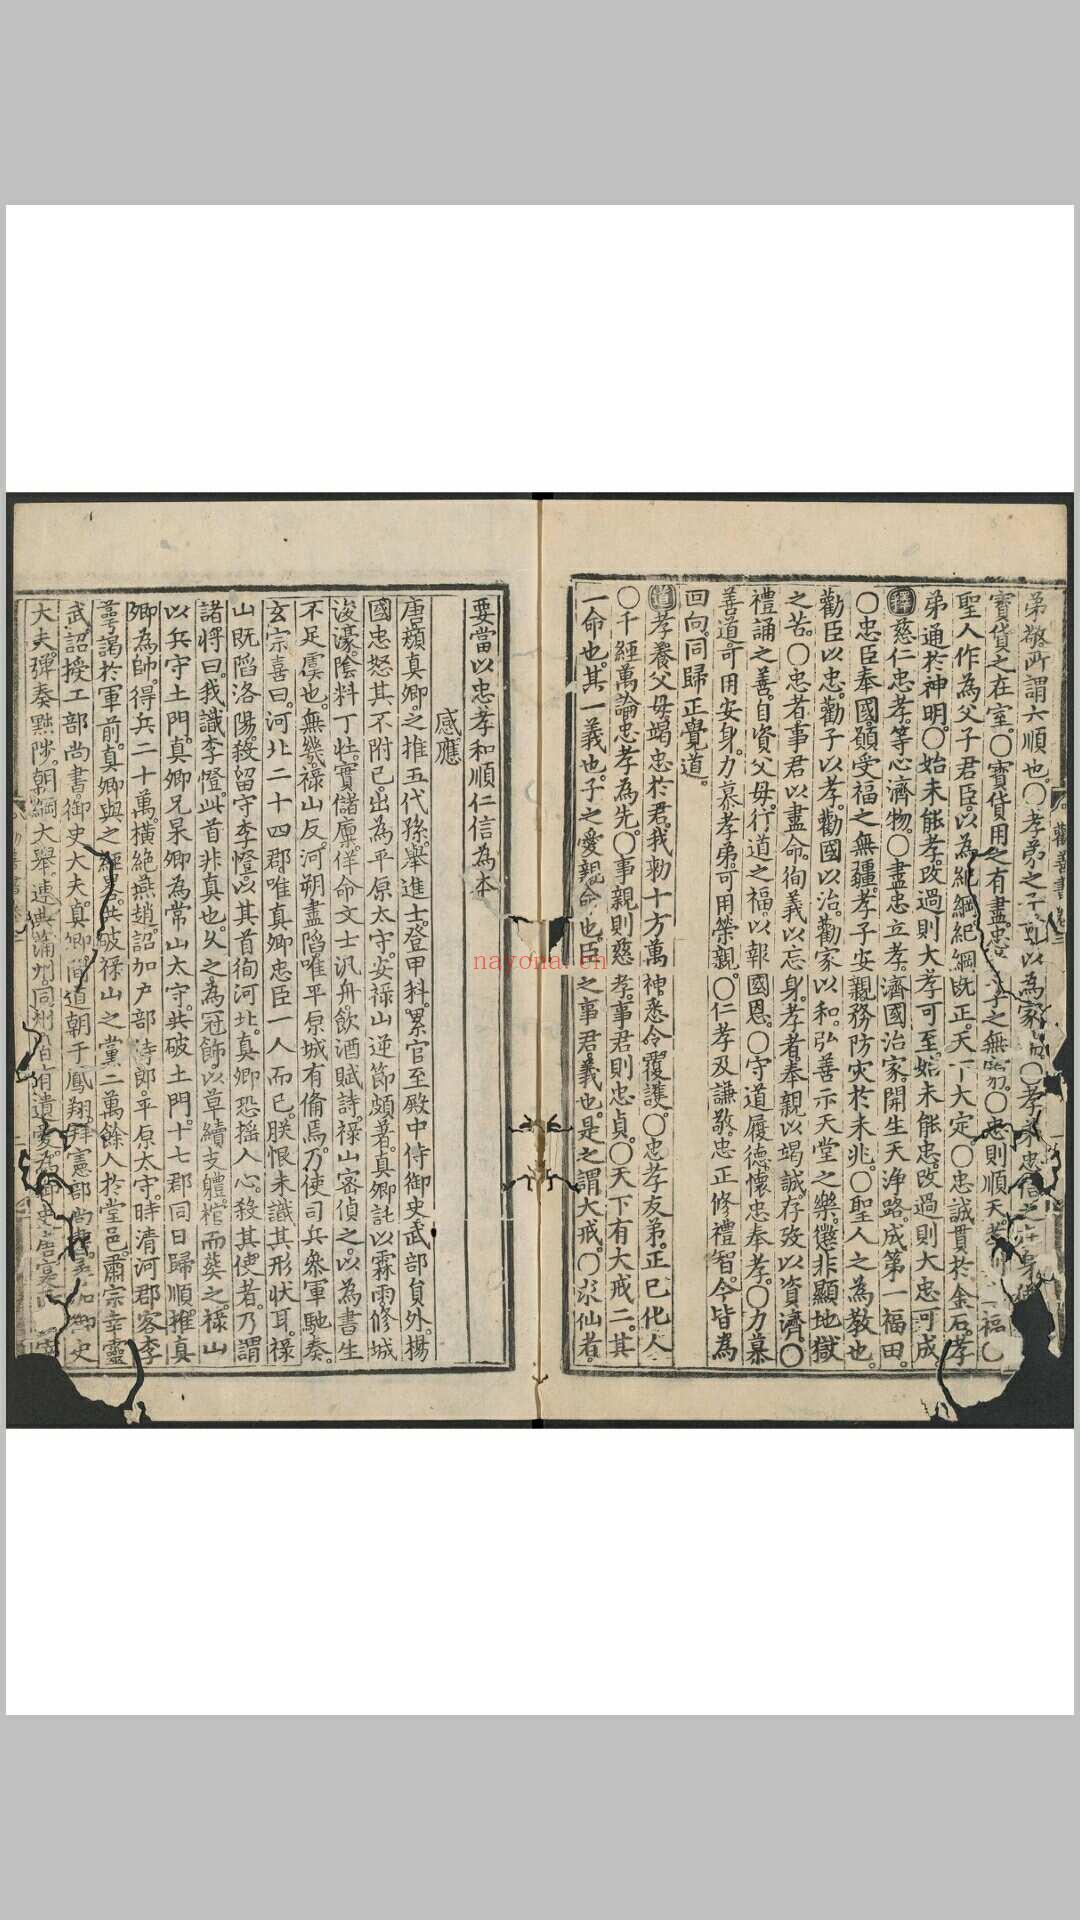 弟敬所謂六順也○孝弟之
寶貨之在室○寶貨用之有盡忠
聖人作為父子君臣以為紀綱紀綱既正天下大定○忠誠貫於金石孝
弟通於神明○始未能孝改過則大孝可至始未能忠改過則大忠可成
釋慈仁忠孝等心濟物○盡忠立孝濟國治家開生天淨路成第一福田
○忠臣奉國願受福之無疆孝子安親務防灾於未兆○聖人之為教也
勸臣以忠勸子以孝勸國以治勸家以和弘善示天堂之樂懲非顯地獄
之苦○忠者事君以盡命徇義以忘身孝者奉親以竭誠存歿以資濟○
禮誦之善自資父母行道之福以報國恩○守道履德懷忠奉孝○力慕
善道可用安身力慕孝弟可用榮親○仁孝及謙敬忠正修禮智今皆為
回向同歸正覺道
道孝養父母竭忠於君我勑十方萬神悉令覆護○忠孝友弟正己化人
○千經萬論忠孝為先○事親則慈孝事君則忠貞○天下有大戒二其
一命也其一義也子之愛親命也臣之事君義也是之謂大戒○求仙者
要當以忠孝和順仁信為本
感應
唐顏真卿之推五代孫舉進士登甲科累官至殿中侍御史武部員外楊
國忠怒其不附已出為平原太守安祿山逆節頗著真卿託以霖雨修城
浚濠陰料丁壯實儲廩佯命文士汎舟飲酒賦詩祿山密偵之以為書生
不足虞也無幾祿山反河朔盡陷唯平原城有備焉乃使司兵叅軍馳奏
玄宗喜曰河北二十四郡唯真卿忠臣一人而已朕恨未識其形狀耳祿
山既陷洛陽殺留守李憕以其首徇河北真卿恐搖人心殺其使者乃謂
諸將曰我識李憕此首非真也久之為冠飾以草續支體棺而葬之祿山
以兵守土門真卿兄杲卿為常山太守共破土門十七郡同日歸順推真
卿為帥得兵二十萬橫絕燕趙詔加户部侍郎平原太守時清河郡客李
蕚謁於軍前真卿與之經畧共破祿山之黨二萬餘人於堂邑肅宗幸靈
武詔授工部尚書御史大夫真卿間道朝于鳳翔拜憲部尚書 御史
大夫彈奏黜陟朝綱大舉連典蒲州同州皆有遺愛為御史唐旻
nayona.cn